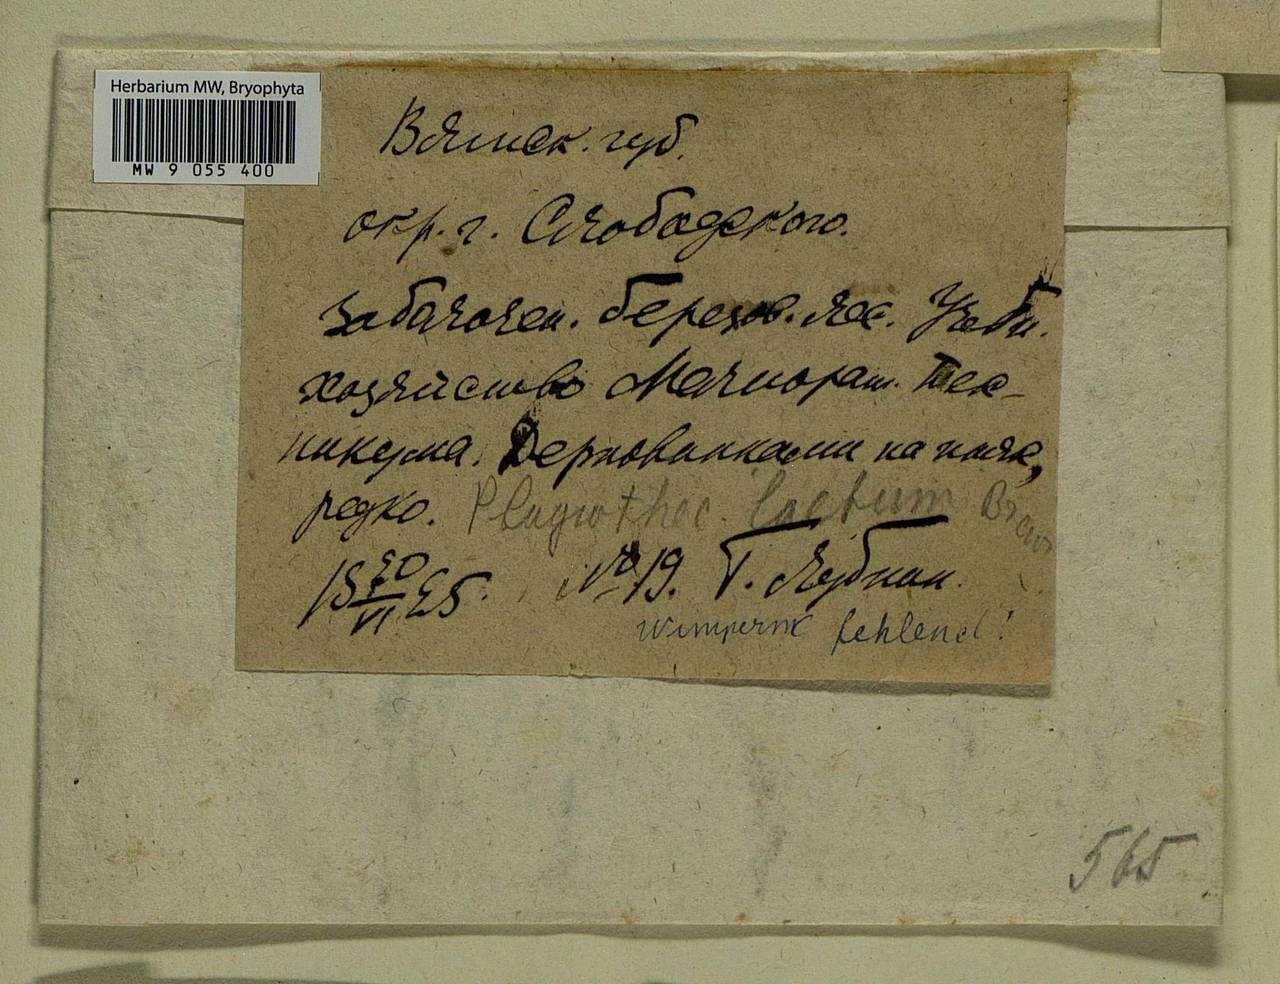 Herbarium MW, Bryophyta
MW 9 055 400
Вятск. губ.
окр. г. Слободского.
Заболочен. березов. лес. Учебн.
хозяйство Мелиорат. Тех-
никума. Дерновинками на пнях,
редко. Plagiothec. laetum
VI 25. № 19. Г.
fehlend!
565